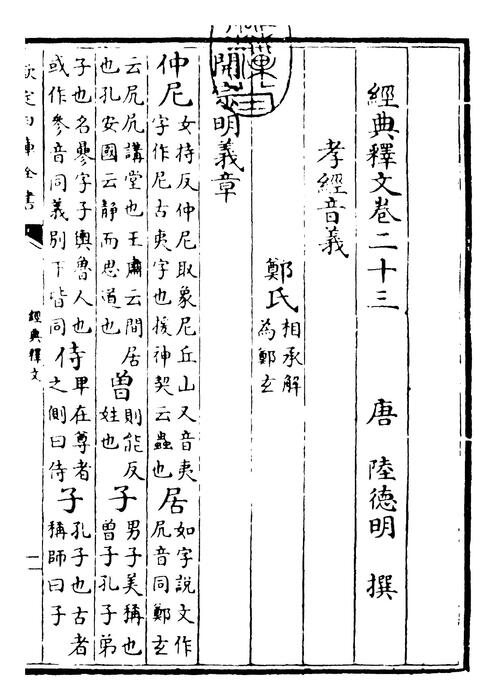 經典釋文卷二十三 唐 陸德明 撰
孝經音義
鄭氏 相承解
為鄭玄
開宗明義章
仲尼 女持反仲尼取象尼丘山又音夷
字作尼古夷字也援神契云蟲也
居 如字說文作
凥音同鄭玄
云凥凥講堂也王肅云閒居
也孔安國云静而思道也
曾 則能反
姓也
子 男子美稱也
曾子孔子弟
子也名曑字子輿魯人也
或作參音同義别下皆同
侍 卑在尊者
之側曰侍
子 孔子也古者
稱師曰子
欽定四庫全書
經典釋文
一